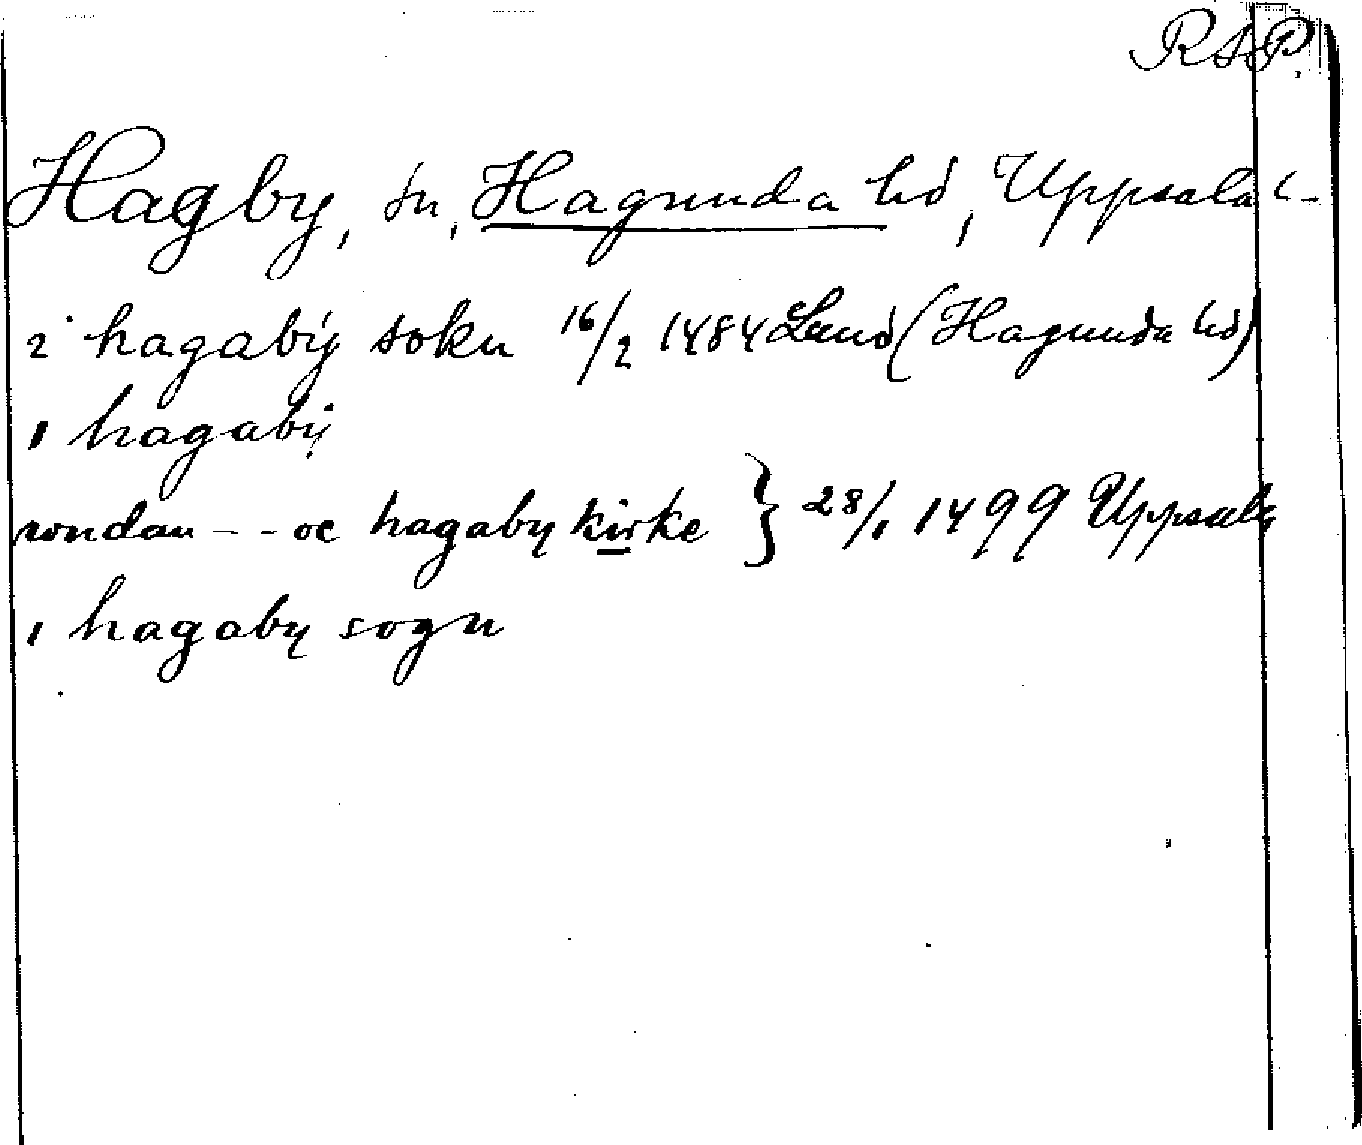 RAP.
Hagby, sn, Hagunda hd, Uppsala l.
i hagabÿ sokn 16/2 1484 Lund (Hagunda hd)
i hagabÿ
rondan - - oc hagaby kirke } 28/1 1499 Uppsala
i hagaby sogn